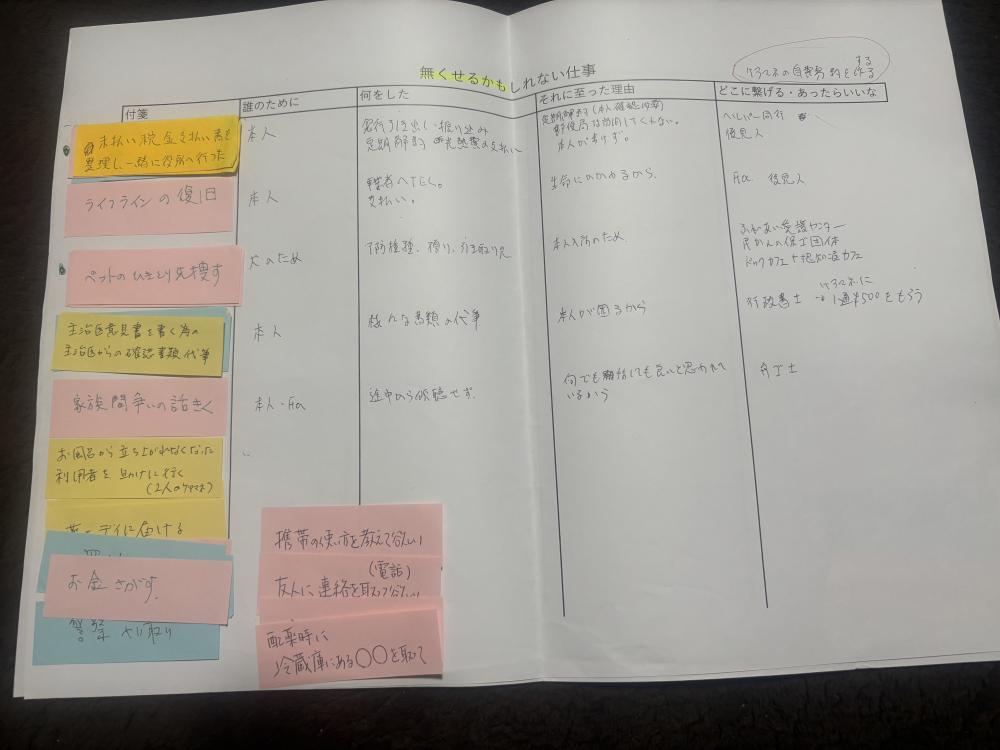 無くせるかもしれない仕事
ケアマネの自費契約を作る
する
付箋
誰のために
何をした
それに至った理由
どこに繋げる・あったらいいな
未払い税金を払い書を
整理し一緒に役所へ行った
本人
銀行引き出し・振り込み
定期解約 光熱費の支払い
定期解約(本人確認必要)
郵便局は訪問してくれない。
本人が歩けず。
ヘルパー同行
後見人
ライフラインの復旧
本人
業者へTEL。
支払い。
生命にかかわるから
Fa. 後見人
ペットのひきとり先捜す
犬のため
予防接種、引き取り先
本人入所のため
ふれあい愛護センター
民かんの保ゴ団体
ドックカフェ+認知症カフェ
主治医意見書を書く為の
主治医からの確認書類代筆
本人
色んな書類の代筆
本人が困るから
行政書士
ケアマネに
1通¥500をもらう
家族間争いの話きく
本人・Fa
途中から傾聴せず。
何でも相談しても良いと思われて
いるから
弁ゴ士
お風呂から立ち上がれなくなった
利用者を助けに行く
(2人のケアマネ)
デイに届ける
お金さがす.
警察 やり取り
携帯の使い方を教えて欲しい
(電話)
友人に連絡を取って欲しい
配薬時に
冷蔵庫にある〇〇を取って